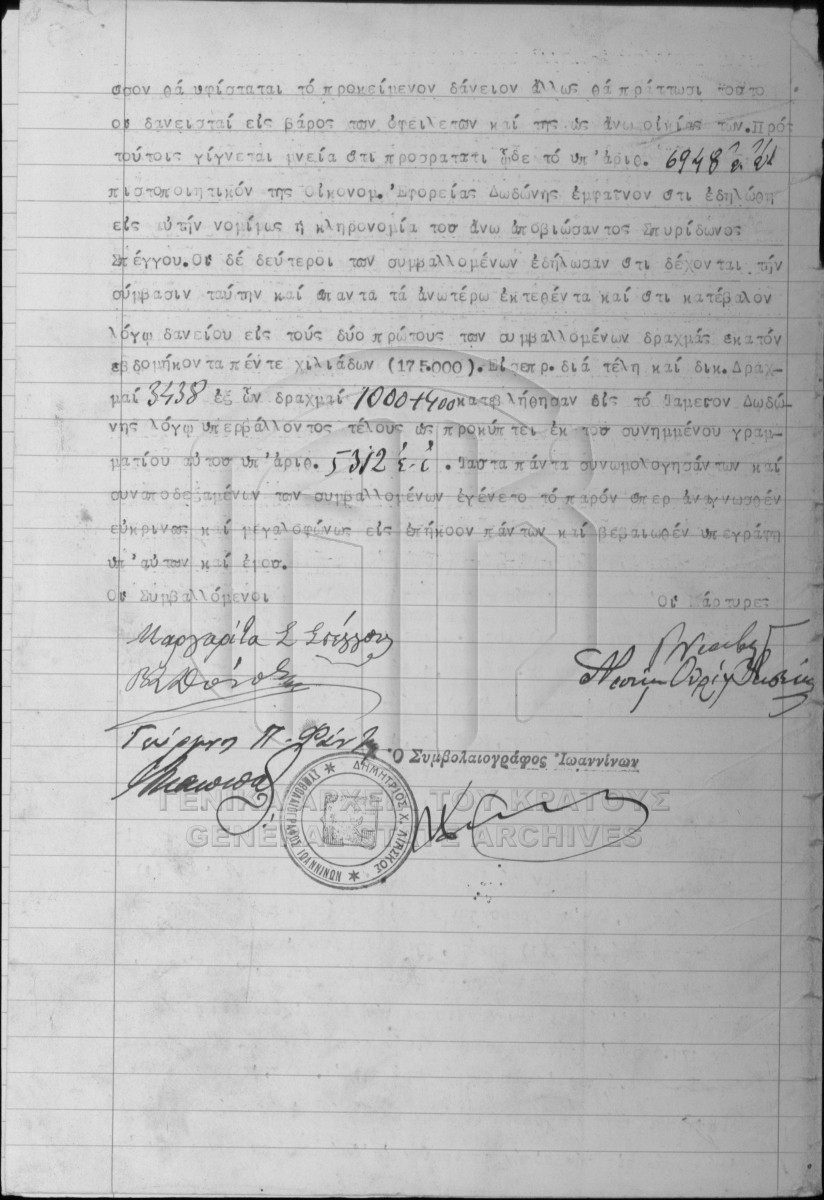 σσον θά υφίσταται τό προκείμενον δάνειον άλλως θά πράττωσι τοστο
οι δανεισταί εις βάρος των οφειλετων καί της ώς άνω οικίας των.Πρός
τούτοις γίγνεται μνεία ότι προσρατατι ώδε τό υπ'άριθ. 6948
πιστοποιητικόν της Οίκονομ.'Εφορείας Δωδώνης έμφατνον ότι έδηλώθη
είς αυτήν νομίμως ή κληρονομία τοσ άνω άποβιώσαντος Σπυρίδωνος
Σπέγγου.Οι δέ δεύτεροι των συμβαλλομένων έδήλωσαν ότι δέχονται τήν
σύμβασιν ταύτην καί άπαντα τά άνωτέρω έκτεθέντα καί ότι κατέβαλον
λόγω δανείου είς τούς δύο πρώτους των συμβαλλομένων δραχμάς εκατόν
εβδομήκοντα πέντε χιλιάδων (175.000).Είσεπρ.διά τέλη καί δικ.Δραχ-
μαί 3438 έξ ών δραχμαί 1000+400 κατεβλήθησαν είς τό Ταμετον Δωδώ-
νης λόγω υπερβάλλοντος τέλους ώς προκύπτει έκ τοσ συνημμένου γραμ-
ματίου αύτοσ υπ'άριθ. 5312 έ.έ. Ταστα πάντα συνωμολογησάντων καί
συναποδεξαμένων των συμβαλλομένων έγένετο τό παρόν όπερ άναγνωσθέν
εύκρινως καί μεγαλοφώνως είς έπήκοον πάντων καί βεβαιωθέν υπεγράφη
υπ'αύτων καί έμοσ.
Οι Συμβαλλόμενοι Οι Μάρτυρες
Μαργαρίτα Σ Σπέγγου
Γεώργιος Π.
Ο Συμβολαιογράφος Ιωαννίνων
ΔΗΜΗΤΡΙΟΣ Χ. ΛΙΑΣΚΟΣ
ΣΥΜΒΟΛΑΙΟΓΡΑΦΟΣ ΙΩΑΝΝΙΝΩΝ
ΓΕΝΙΚΑ ΑΡΧΕΙΑ ΤΟΥ ΚΡΑΤΟΥΣ
GENERAL STATE ARCHIVES